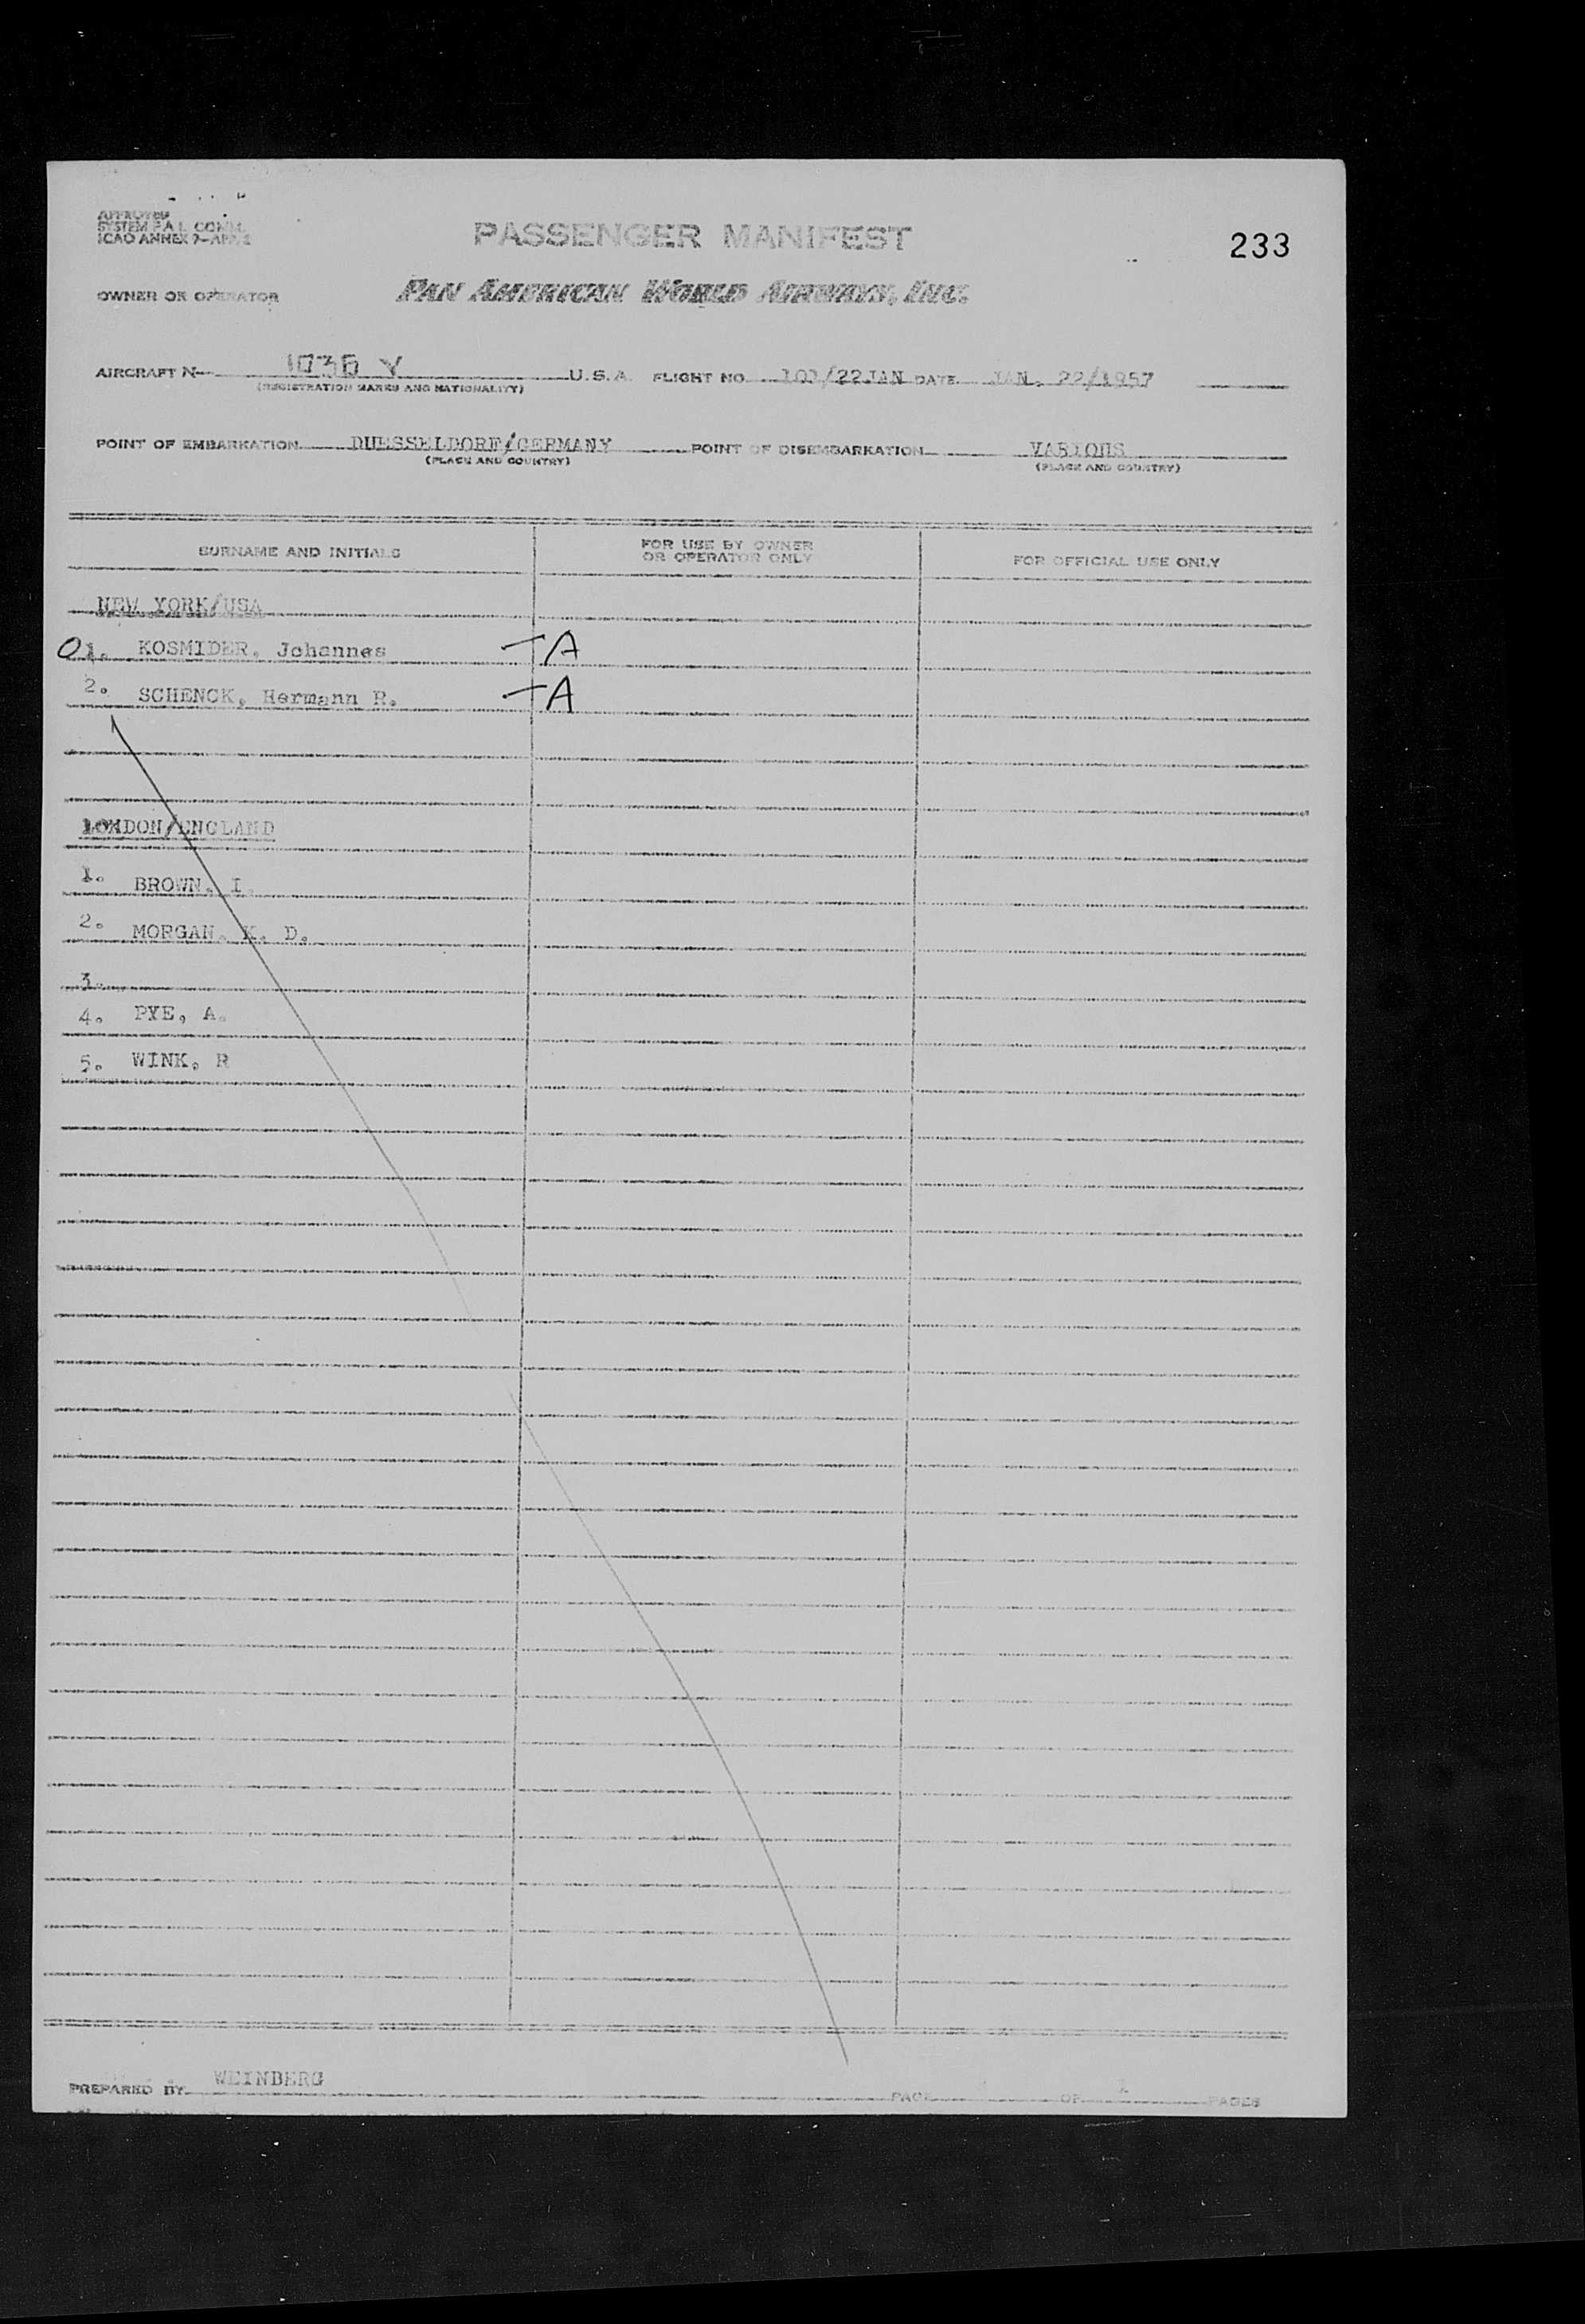 APPROVED
SYSTEM F.A.L. COMM.
ICAO ANNEX 9—APP. 2
PASSENGER MANIFEST
233
OWNER OR OPERATOR
PAN AMERICAN WORLD AIRWAYS, INC.
AIRCRAFT N— 1036 V U.S.A. FLIGHT NO. 101/22JAN DATE JAN. 22/1957
(REGISTRATION MARKS AND NATIONALITY)
POINT OF EMBARKATION DUESSELDORF/GERMANY POINT OF DISEMBARKATION VARIOUS
(PLACE AND COUNTRY) (PLACE AND COUNTRY)
SURNAME AND INITIALS FOR USE BY OWNER OR OPERATOR ONLY FOR OFFICIAL USE ONLY
NEW YORK/USA
01. KOSMIDER, Johannes — A
2. SCHENCK, Hermann R. — A
LONDON/ENGLAND
1. BROWN, I.
2. MORGAN, K. D.
3.
4. PYE, A.
5. WINK, R
PREPARED BY WEINBERG PAGE OF 1 PAGES